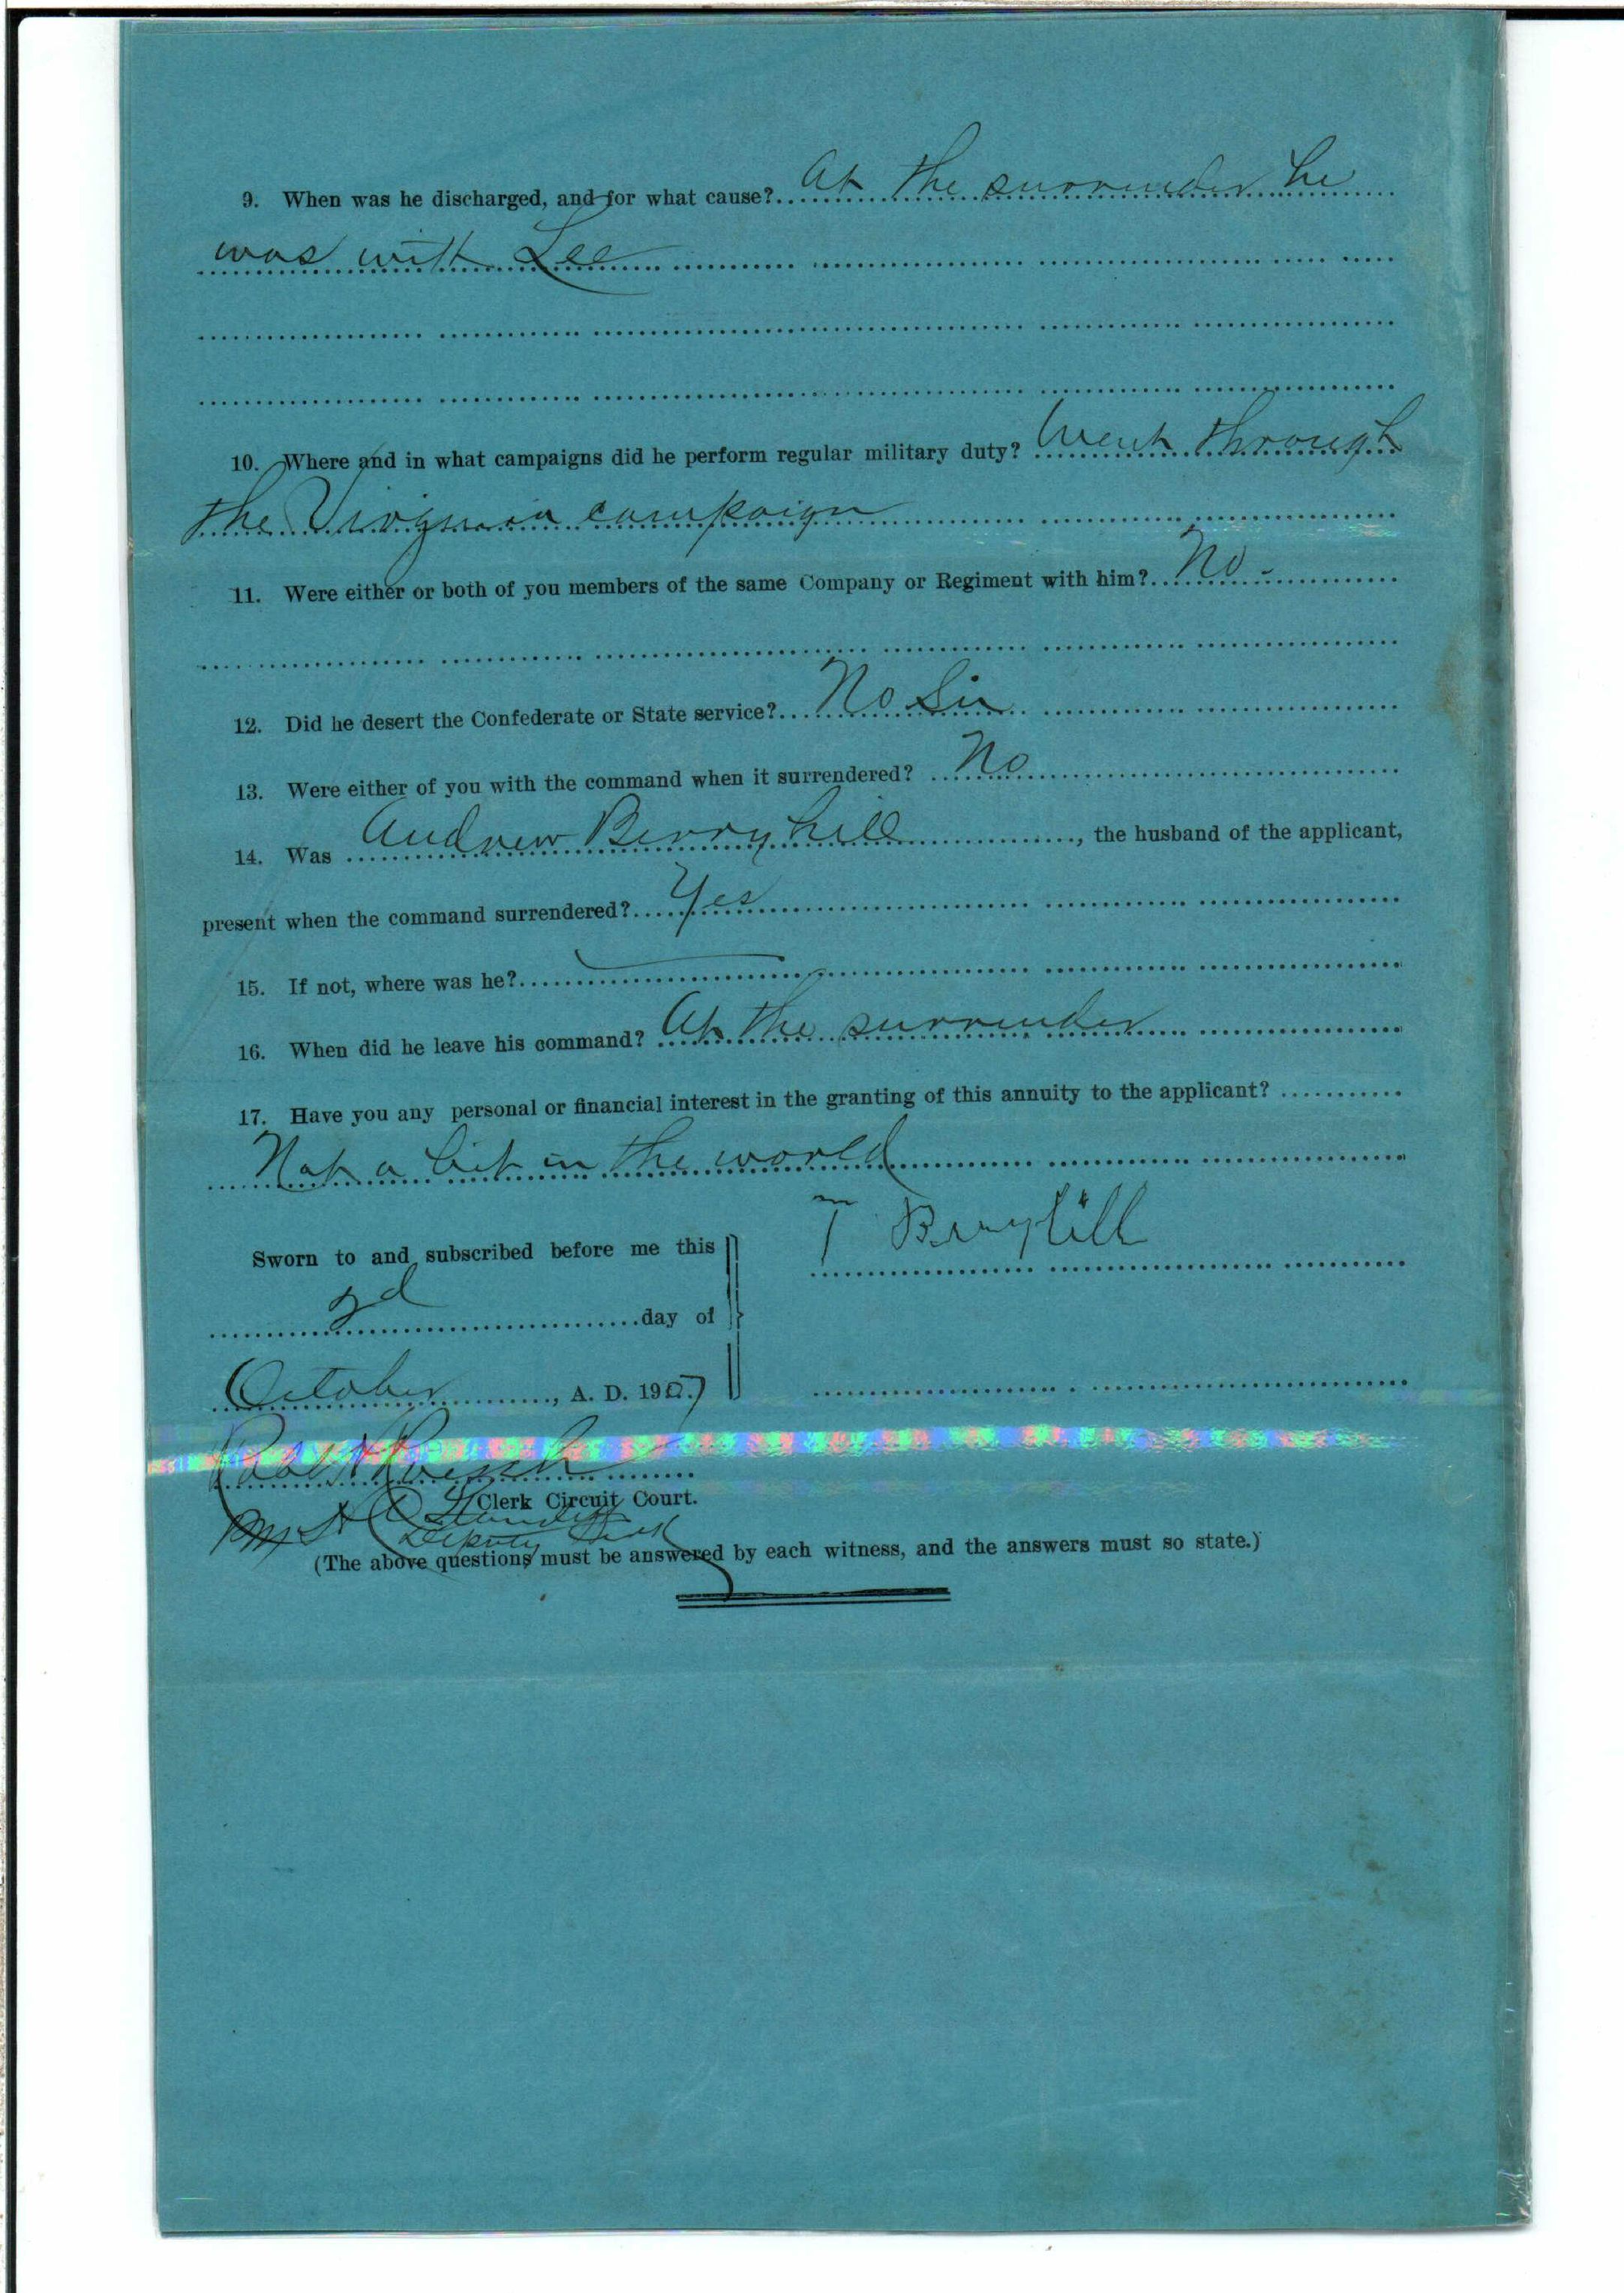 9. When was he discharged, and for what cause? At the surrender he
was with Lee
10. Where and in what campaigns did he perform regular military duty? Went through
the Virginia campaign
11. Were either or both of you members of the same Company or Regiment with him? No -
12. Did he desert the Confederate or State service? No Sir
13. Were either of you with the command when it surrendered? No
14. Was Andrew Berryhill, the husband of the applicant,
present when the command surrendered? Yes
15. If not, where was he?
16. When did he leave his command? At the surrender
17. Have you any personal or financial interest in the granting of this annuity to the applicant?
Not a bit in the world
T Berryhill
Sworn to and subscribed before me this
day of
October, A. D. 1907
Clerk Circuit Court.
Deputy Clerk
(The above questions must be answered by each witness, and the answers must so state.)